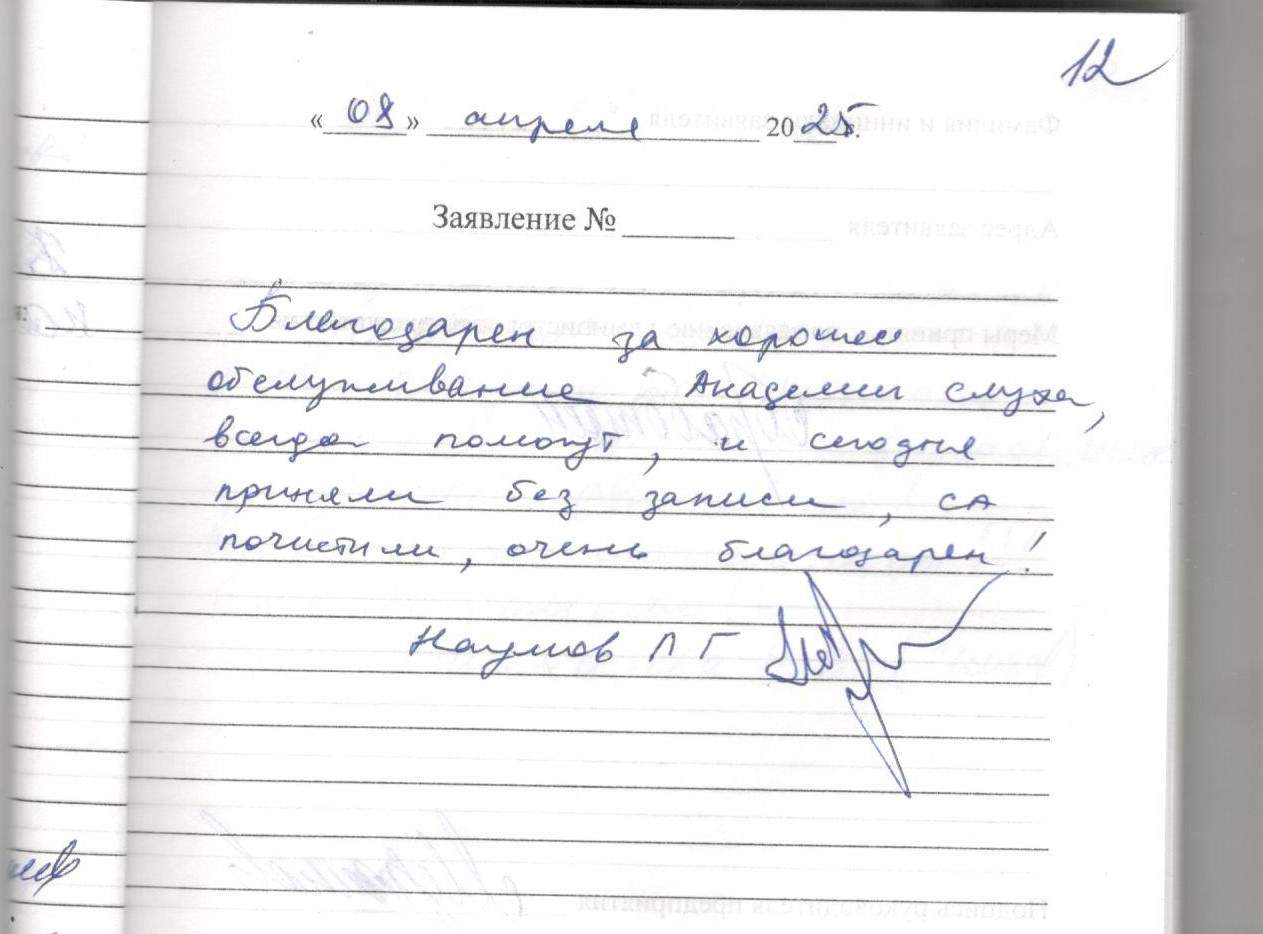 12
« 08 » апреля 2025 г.
Заявление № ______
Благодарен за хорошее
обслуживание Академии слуха,
всегда помогут, и сегодня
приняли без записи, СА
почистили, очень благодарен!
Наумов Л Г